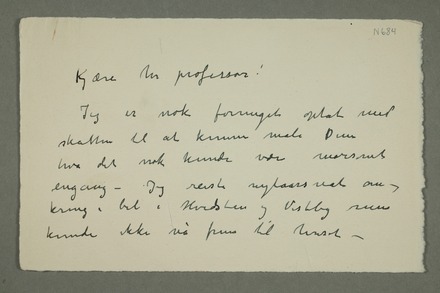 N684
Kjære hr professor!
Jeg er nok fornuget optat med
skatten til at kunne male Dem
hva det nok kunde være morsomt
engang – Jeg reiste nytaarsnat om-
kring i bil i Hvidsten og Vestby men
kunde ikke nå frem til huset –